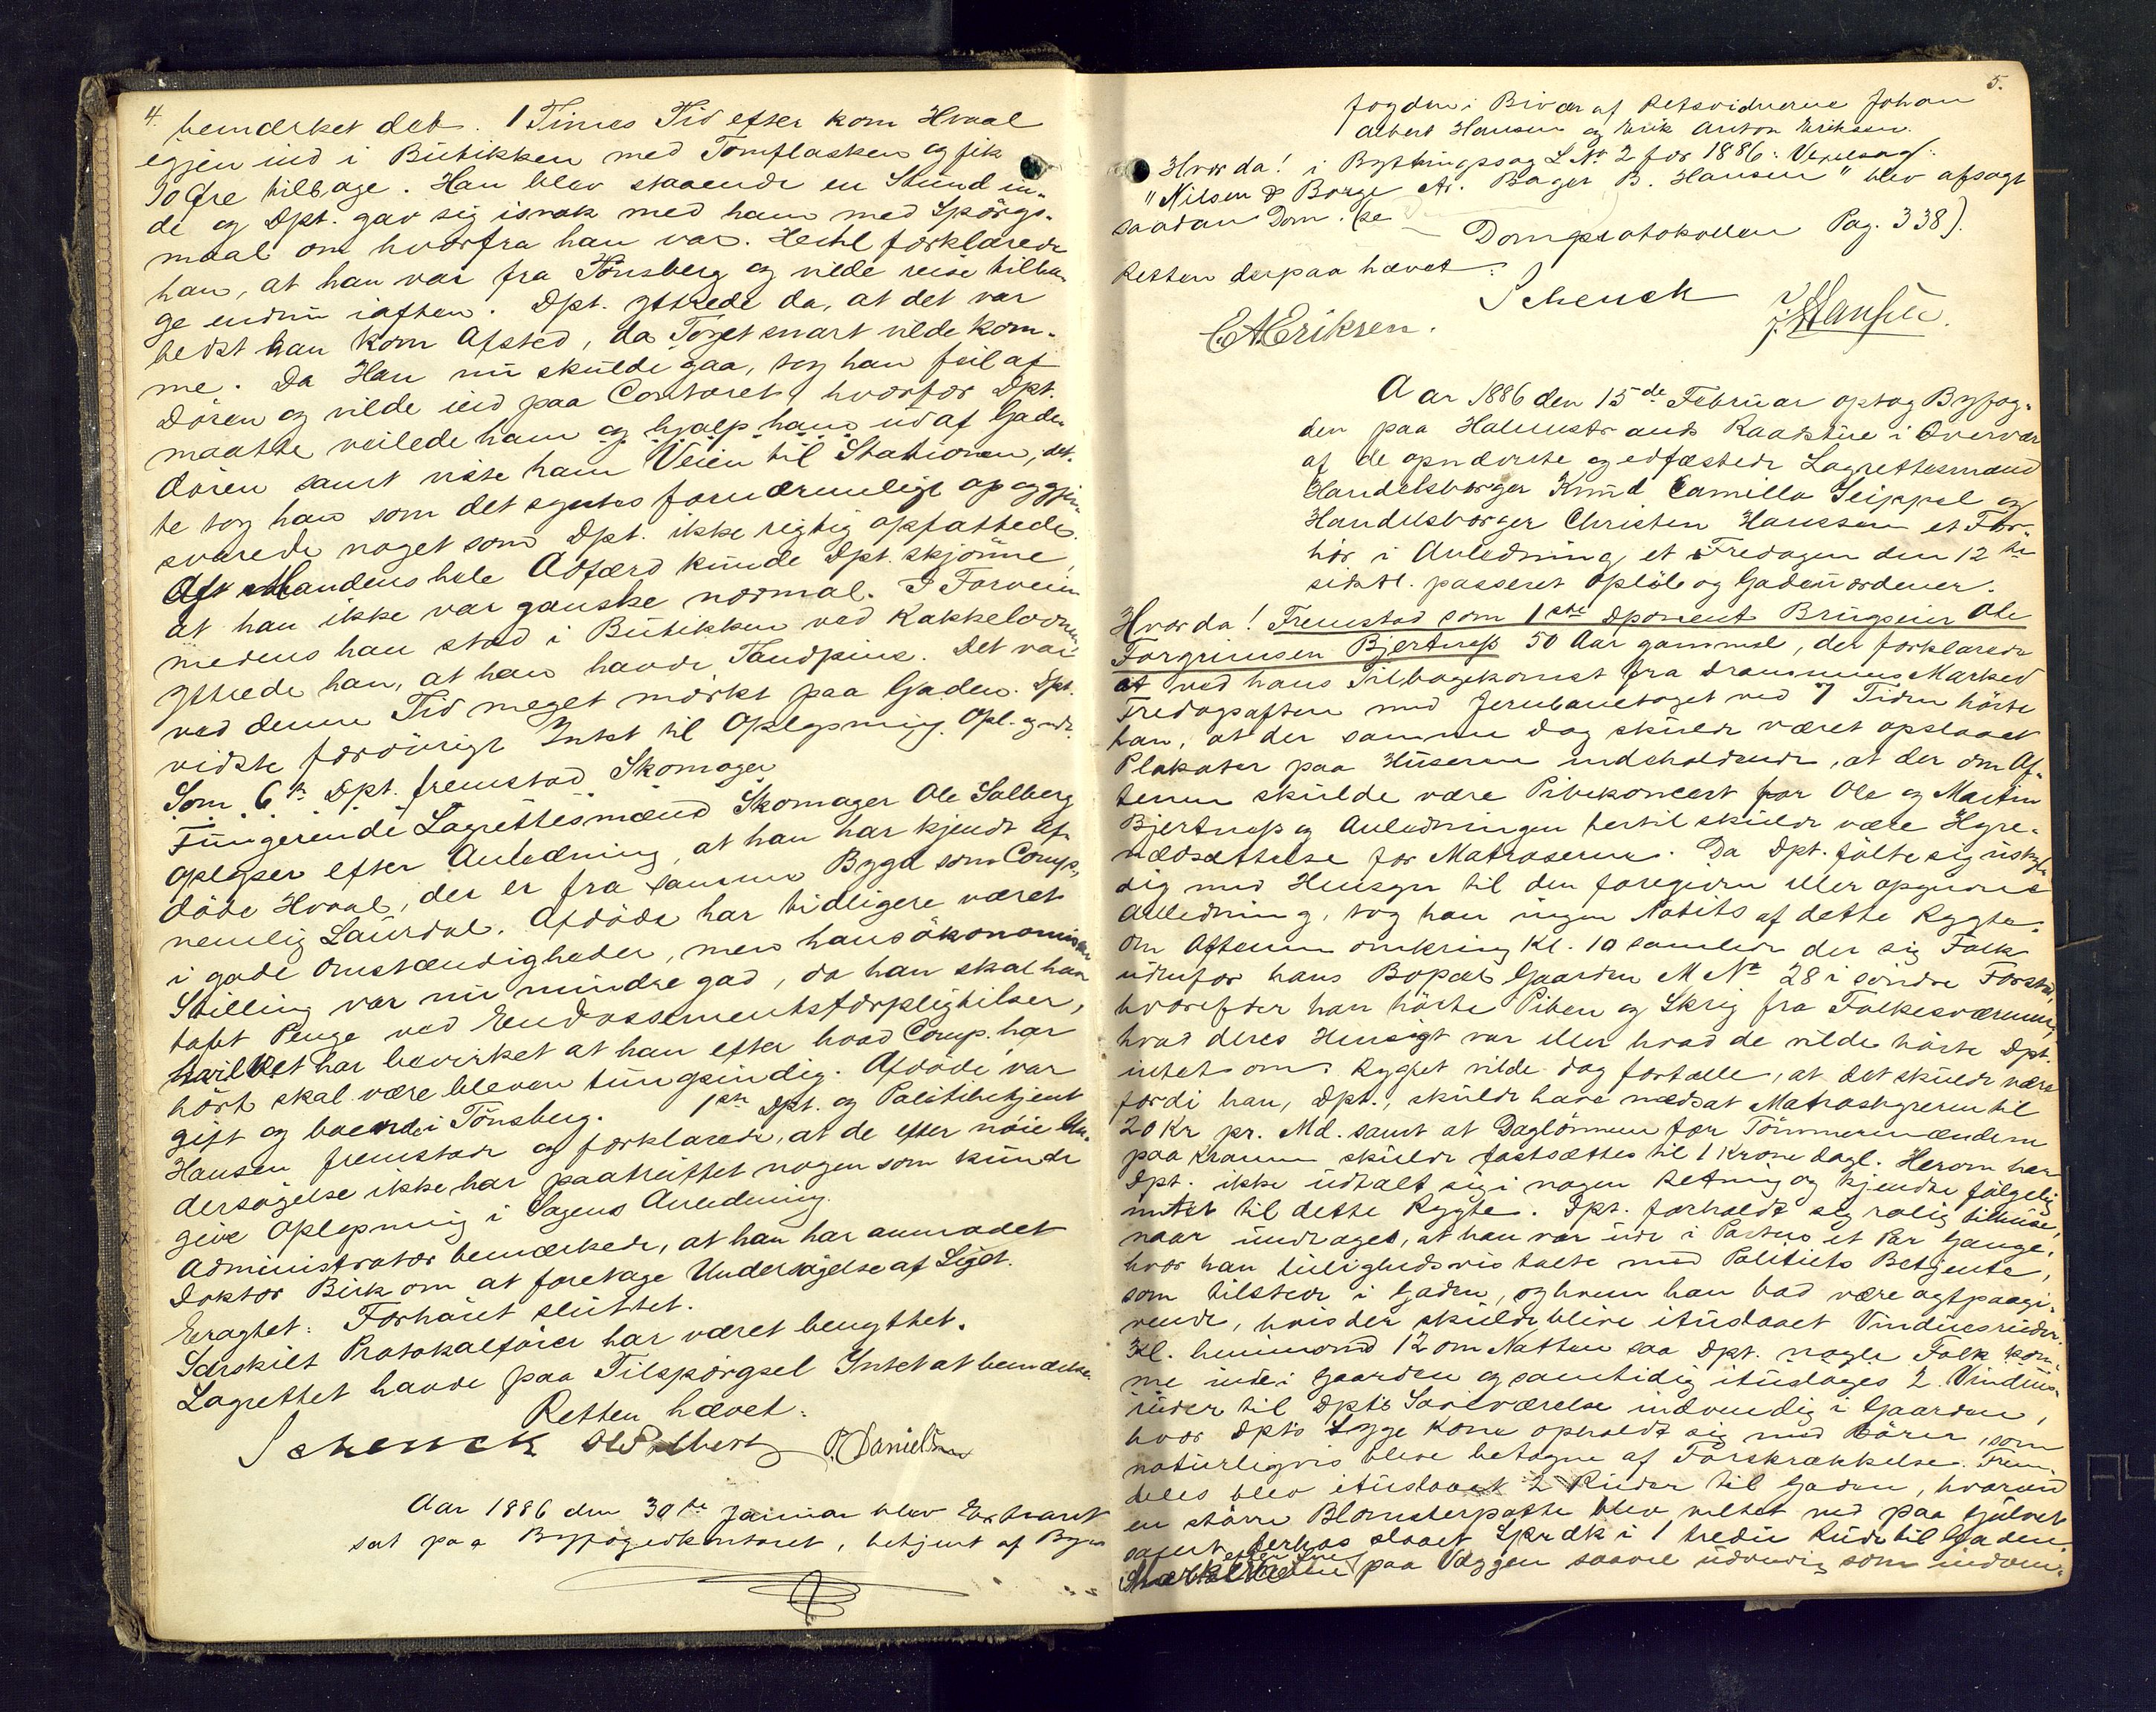 4.
bemærket det. 1 Times Tid efter kom Hvaal
igjen ind i Butikken med Tomflasken og fik
10 Øre tilbage. Han blev staaende en Stund in-
de og Dpt. gav sig isnak med ham med Spörgs-
maal om hvorfra han var. Hertil forklarede
han, at han var fra Tönsberg og vilde reise tilba-
ge endnu iaften. Dpt. yttrede da, at det var
bedst han kom Afsted, da Toget snart vilde kom-
me. Da Han nu skulde gaa, tog han feil af
Dören og vilde ind paa Contoret, hvorfor Dpt.
maatte veilede ham og hjalp ham ud af Gade-
dören samt viste ham Veien til Stationen, det-
te tog han som det syntes fornærmelige op og gjen-
svarede noget som Dpt. ikke rigtig opfattede.
Af Mandens hele Adfærd kunde Dpt. skjönne,
at han ikke var ganske normal. I Forveien
medens han stod i Butikken ved Kakkelovnen
yttrede han, at han havde Tandpine. Det var
ved denne Tid meget mörkt paa Gaden. Dpt.
vidste forövrigt Intet til Oplysning. Opl. og vedt.
Som 6te Dpt. fremstod Skomager
Fungerende Lagrettesmænd Skomager Ole Solberg
oplyser efter Anledning, at han har kjendt af-
döde Hvaal, der er fra samme Bygd som Comp.,
nemlig Laurdal. Afdöde har tidligere været
i gode Omstændigheder, men hans ökonomiske
Stilling var nu mindre god, da han skal have
tabt Penge ved Endossementsforpligtelser,
hvilket har bevirket at han efter hvad Comp. har
hört skal være bleven tungsindig. Afdöde var
gift og boende i Tönsberg. 1ste Dpt. og Politibetjent
Hansen fremstod og forklarede, at de efter nöie Un-
dersögelse ikke har paatruffet nogen som kunde
give Oplysning i Sagens Anledning.
Administrator bemærkede, at han har anmodet
Doktor Birk om at foretage Undersögelse af Liget.
Eragtet: Forhöret sluttet.
Særskilt Protokolförer har været benyttet.
Lagrettet havde paa Tilspörgsel Intet at bemærke.
Retten hævet.
Schenck O Solberg P. Danielsen
Aar 1886 den 30te Januar blev Extraret
sat paa Byfogedkontoret, betjent af Byen
5.
fogden i Bivær af Retsvidnerne Johan
Albert Hansen og Erik Anton Eriksen.
Hvor da! i Bythingssag L No 2 for 1886: Vexelsag:
"Nilsen & Borge ctr. Bager B. Hansen" blev afsagt
saadan Dom. (se
Domprotokollen Pag. 338).
Retten derpaa hævet.
Schenck
EAEriksen. J Hansen.
Aar 1886 den 15de Februar optog Byfog-
den paa Holmestrands Raadstue i Overvær
af de opnævnte og edfæstede Lagrettesmænd
Handelsborger Knud Camillo Seippel og
Handelsborger Christen Hanssen et For-
hör i Anledning et Fredagen den 12te
sidstl. passeret Oplöb og Gadeuordener.
Hvor da! Fremstod som 1ste Dponent Brugseier Ole
Torgrimsen Bjertnæs 50 Aar gammel, der forklarede
at ved hans Tilbagekomst fra Drammens Marked
Fredagsaften med Jernbanetoget ved 7 Tiden hörte
han, at der samme Dag skulde været opslaaet
Plakater paa Husene indeholdende, at der om Af-
tenen skulde være Pibekoncert for Ole og Martin
Bjertnæs og Anledningen hertil skulde være Hyre-
nedsættelse for Matroserne. Da Dpt. fölte sig uskyl-
dig med Hensyn til den foregivne eller opgivne
Anledning, tog han ingen Notits af dette Rygte.
Om Aftenen omkring Kl. 10 samlede der sig Folk
udenfor hans Bopæl Gaarden M No 28 i söndre Forstad,
hvorefter han hörte Piben og Skrig fra Folkesværmen,
hvad deres Hensigt var eller hvad de vilde hörte Dpt.
intet om. Rygtet vilde dog fortælle, at det skulde være
fordi han, Dpt., skulde have nedsat Matroshyren til
20 Kr pr. Md. samt at Daglönnen for Tömmermændene
paa Kranen skulde fastsættes til 1 Krone dagl. Herom har
Dpt. ikke udtalt sig i nogen Retning og kjendte fölgelig
intet til dette Rygte. Dpt. forholdt sig rolig tilhuse,
naar undtages, at han var ude i Porten et Par Gange,
hvor han leilighedsvis talte med Politiets Betjente,
som tilstede i Gaden, og hvem han bad være agtpaagi-
vende, hvis der skulde blive ituslaaet Vinduesruder.
Kl. henimod 12 om Natten saa Dpt. nogle Folk kom-
me inde i Gaarden og samtidig ituslages 2 Vindues-
ruder til Dpts Soveværelse indvendig i Gaarden,
hvor Dpts syge Kone opholdt sig med Börn, som
naturligvis bleve betagne af Forskrækkelse. Frem-
deles blev ituslaaet 2 Ruder til Gaden, hvorved
en större Blomsterpotte blev veltet ned paa Gulvet
samt derhos slaaet Spræk i 1 tredie Rude til Gaden.
paa Væggen saavel udvendig som indven-